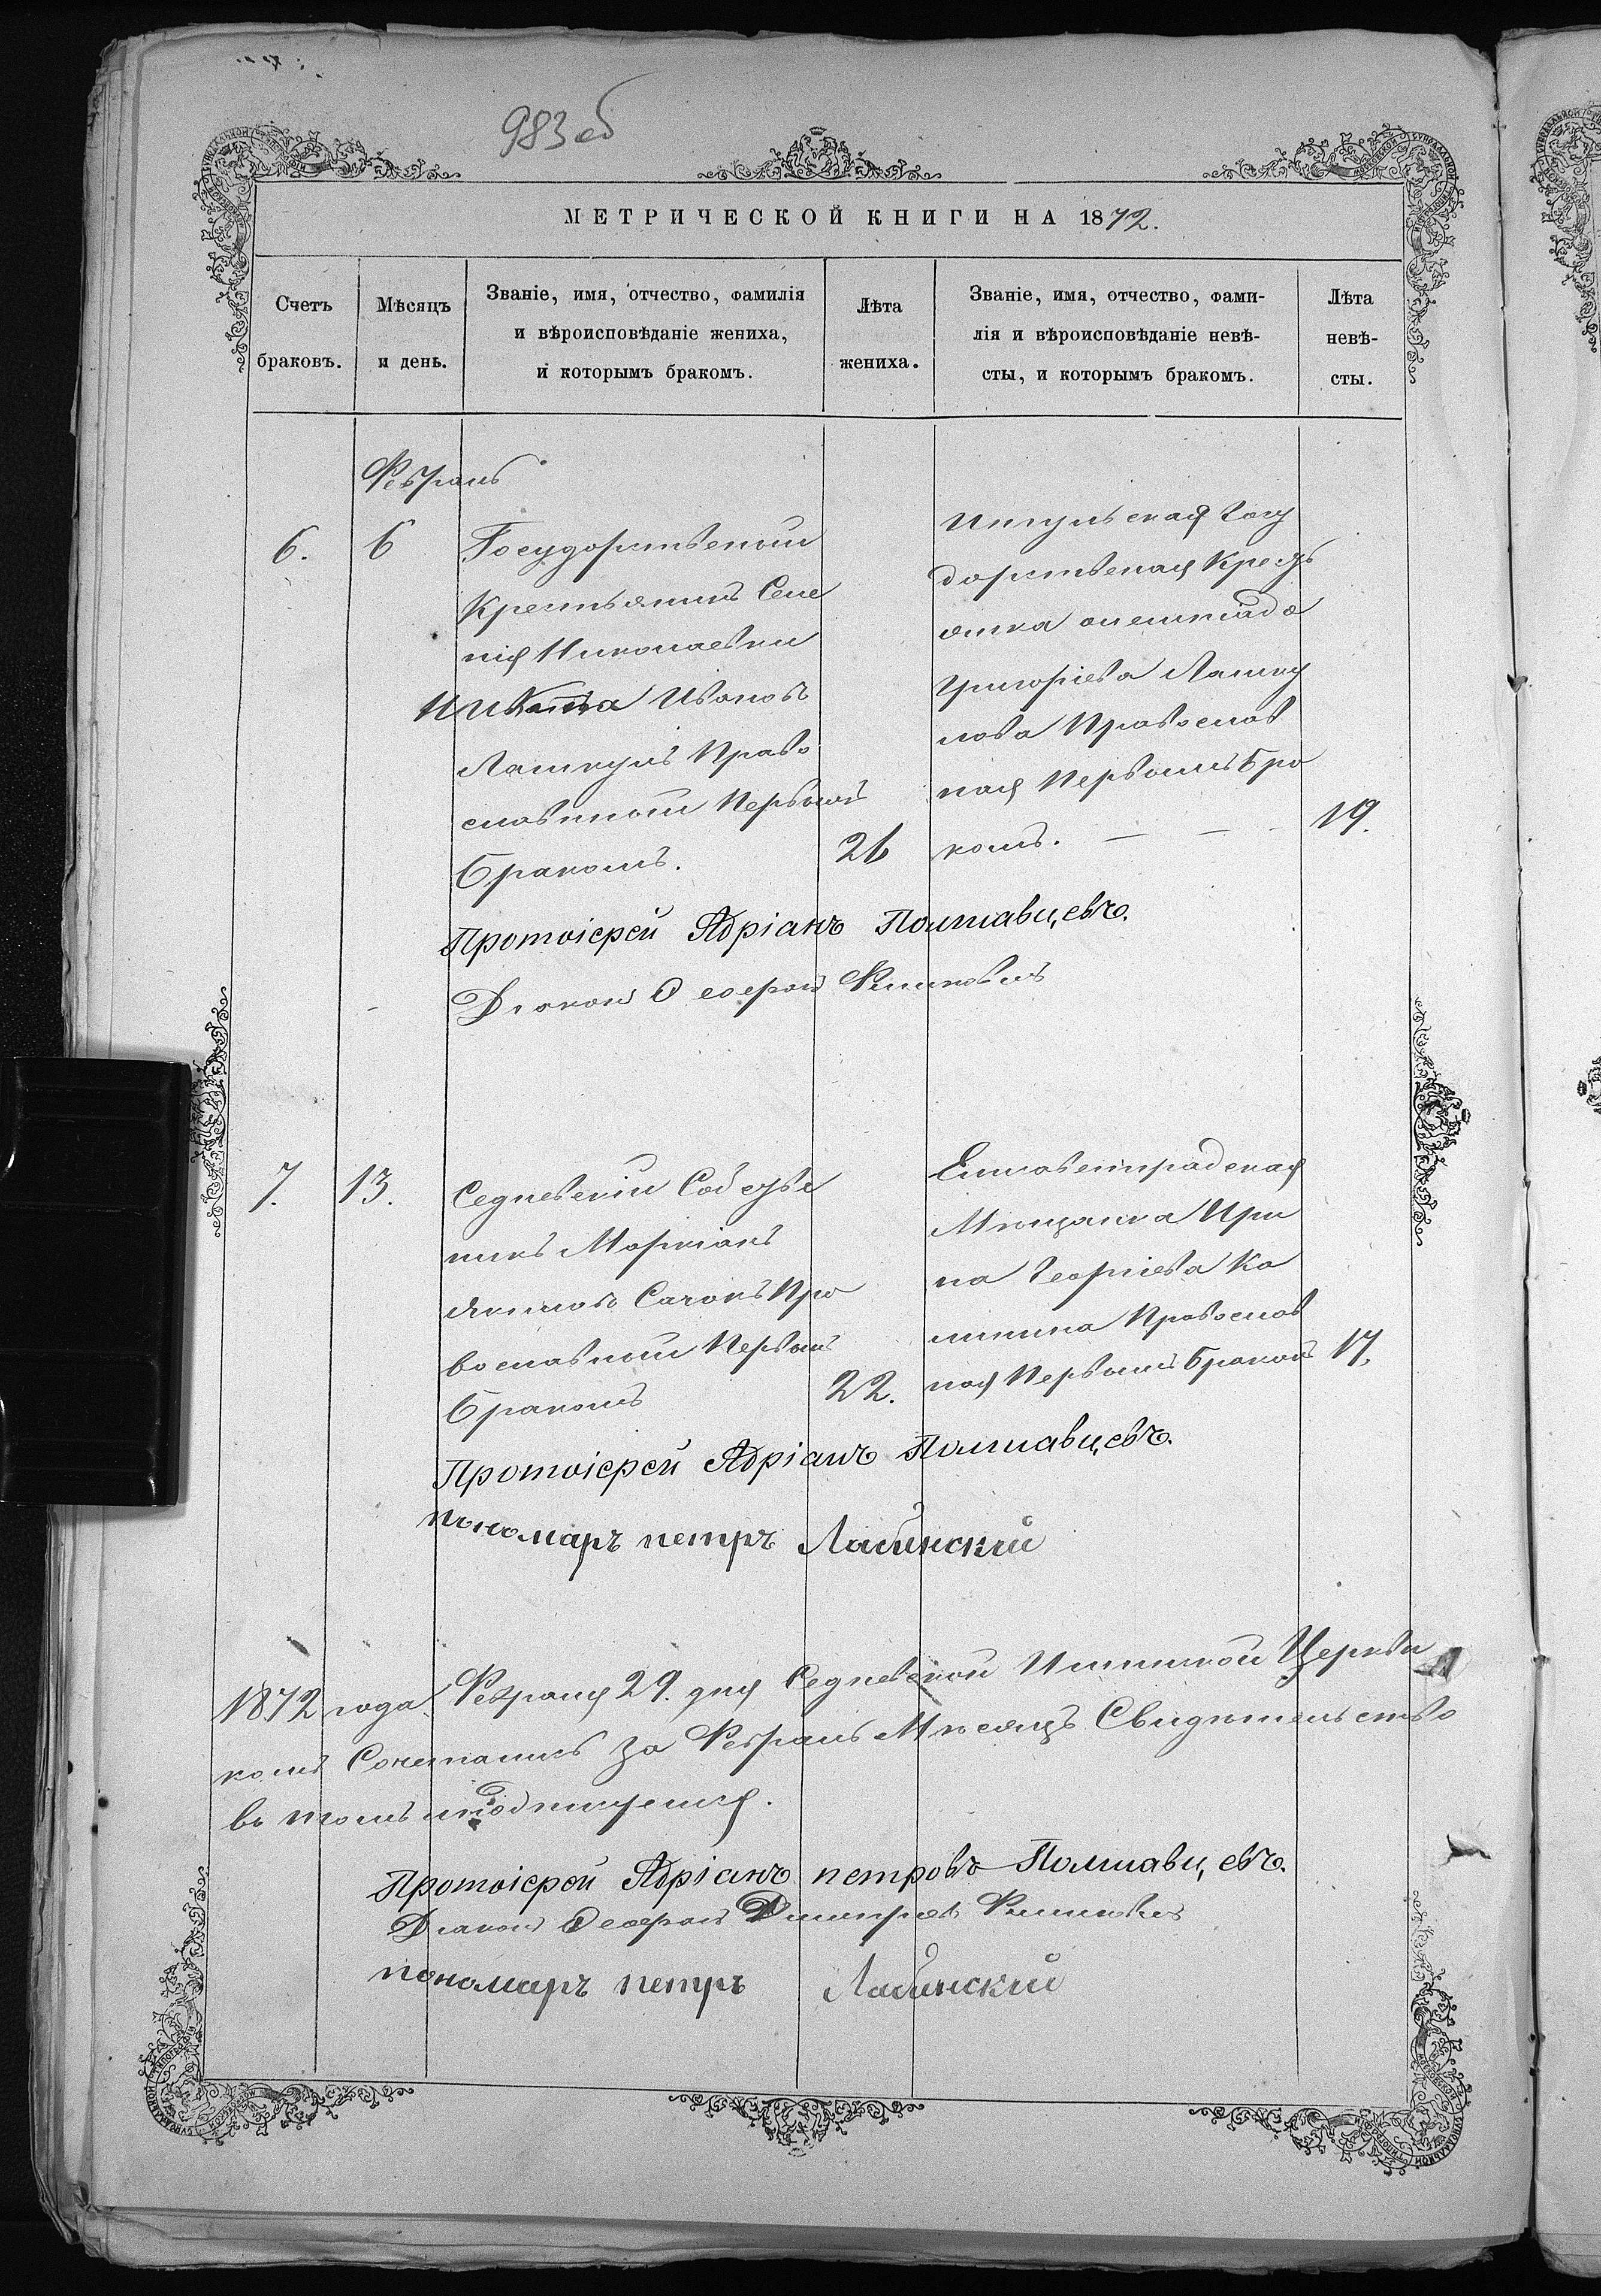 983об
МЕТРИЧЕСКОЙ КНИГИ НА 1872.
Счетъ браковъ.
Мѣсяцъ и день.
Званіе, имя, отчество, фамилія
и вѣроисповѣданіе жениха,
и которымъ бракомъ.
Лѣта жениха.
Званіе, имя, отчество, фами-
лія и вѣроисповѣданіе невѣ-
сты, и которымъ бракомъ.
Лѣта невѣ-
сты.
Февраль
6.
6
Государственый
Крестьянинъ Селе
нія Николаевки
Никита Ивановъ
Лашкулъ Право
славный Первымъ
бракомъ.
26
Ингульская Госу
дарственая Крестъ
янка
Григоріева Лашку
лова Православ
ная Первымъ Бра
комъ.
19.
Протоіерей Адріанъ Полтавцевъ.
Діаконъ
7.
13.
Седневскій Собстве
никъ Маркіанъ
Якимовъ Сачокъ Пра
вославный Первымъ
Бракомъ
22.
Елисаветградская
Мѣщанка Ири
на Георгіева Ка
линина Православ
ная Первымъ Бракомъ
17.
Протоіерей Адріанъ Полтавцевъ.
пономарь петръ Лабинскій
1872 года Февраля 29. дня Седневской Церкви
комъ Сочетались за Февраль Мѣсяцъ Свидѣтельство
въ томъ и подпишемся.
Протоіерей Адріанъ петровъ Полтавцевъ.
Діаконъ Дмитріевъ
пономарь петръ Лабинскій